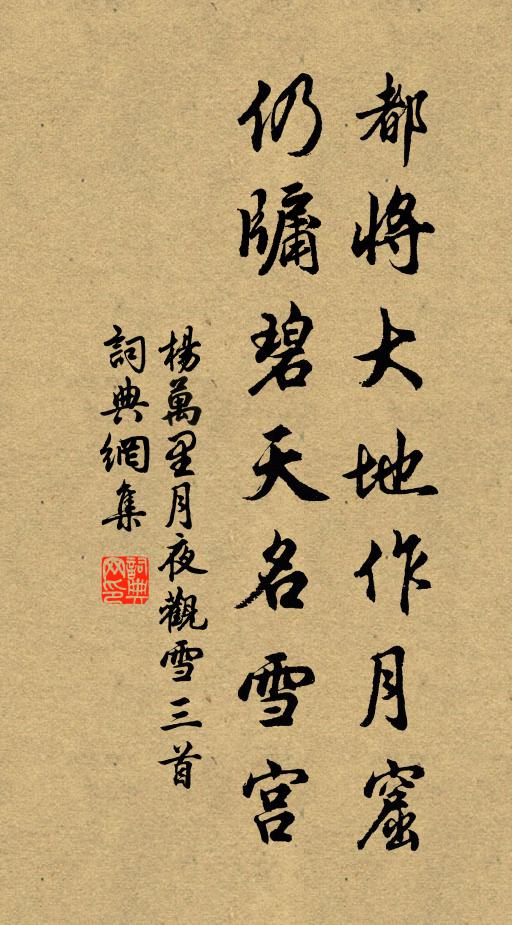 都將大地作月窟
仍牗碧天名雪宮
楊萬里月夜觀雪三首
詞典網集
詞典網印